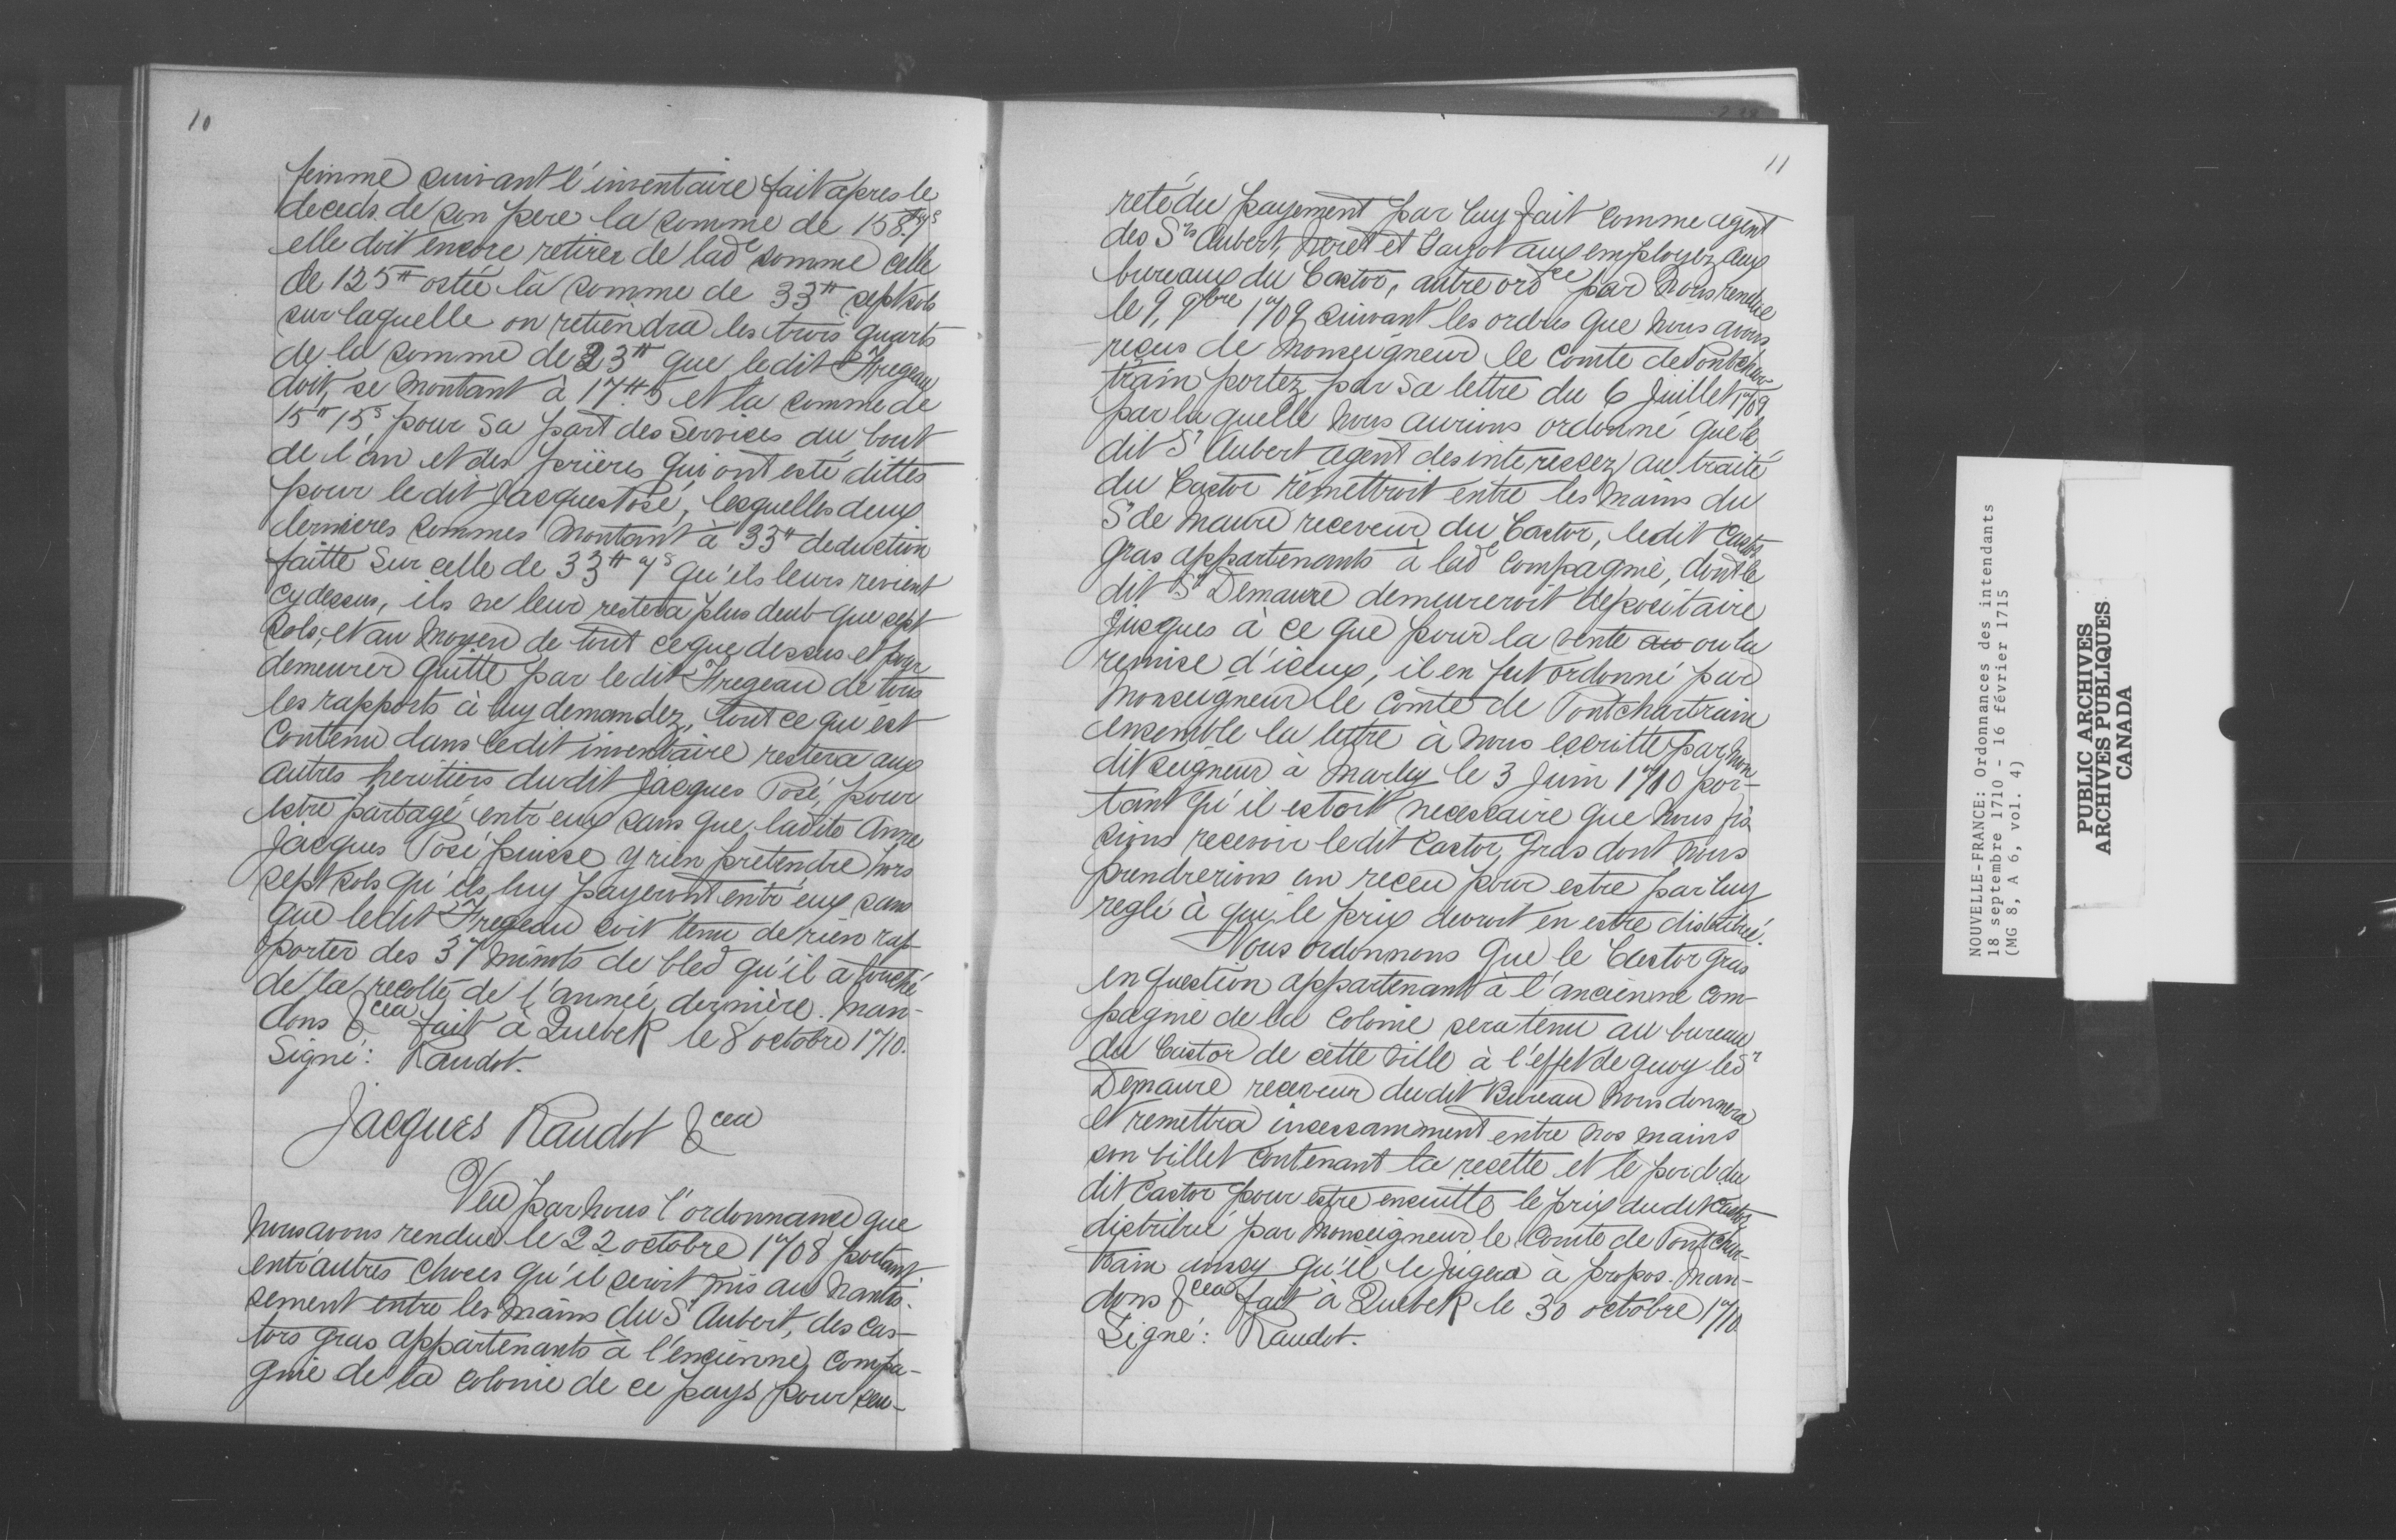 10
femme suivant l'inventaire fait apres le
deceds de son pere la somme de 158.tt 7s
elle doit encore retirer de lade somme celle
de 125tt ostée la somme de 33tt sept sols
sur laquelle on retiendra les trois quarts
de la somme de 23tt que ledit Fregeau
doit, se montant à 17tt 5 et la somme de
15tt 15s pour sa part des services du bout
de l'an et des prières qui ont esté dittes
pour ledit Jacques Posé, lesquelles deux
dernieres sommes montant à 33tt deduction
faitte sur celle de 33tt 7s qu'ils leurs revient
cydessus, ils ne leur restera plus deub que sept
sols, et au moyen de tout ceque dessus et pour
demeurer quitte par ledit Fregeau de tous
les rapports à luy demandez, tout ce qui est
contenu dans ledit inventaire restera aux
autres heritiers dudit Jacques Posé, pour
estre partagé entr'eux sans que ladite Anne
Jacques Posé puisse y rien pretendre hors
sept sols qu'ils luy payeront entr'eux sans
que ledit Fregeau soit tenu de rien rap-
porter des 37 minots de bled qu'il a touché
de la recolte de l'année dernière. Man-
dons &cea fait à Quebek le 8 octobre 1710.
Signé: Raudot.
Jacques Raudot &cea
Veu par nous l'ordonnance que
nous avons rendue le 22 octobre 1708 portant
entr'autres choses qu'il seroit mis au nantis-
sement entre les mains du Sr Aubert, des cas-
tors gras appartenants à l'encienne compa-
gnie de la colonie de ce pays pour seu-
11
reté du payement par luy fait comme agent
des Srs Aubert, Neret et Gayot aux employez aux
bureaux du Castor, autre ordce par nous rendue
le 9, 9bre 1709 suivant les ordres que nous avons
reçus de Monseigneur le Comte de Pontchar-
train portez par sa lettre du 6 Juillet 1709,
par laquelle nous aurions ordonné que le
dit Sr Aubert agent des interessez au traité
du Castor remettroit entre les mains du
Sr de Maure receveur du Castor, ledit Castor
gras appartenants à lade Compagnie, dont le
dit Sr Demaure demeureroit depositaire
jusques à ce que pour la vente au ou la
remise d'iceux, il en fut ordonné par
Monseigneur le Comte de Pontchartrain
ensemble la lettre à nous escritte par mon
dit seigneur à Marly le 3 Juin 1710 por-
tant qu'il estoit necessaire que nous fis-
sions recevoir ledit Castor gras dont nous
prendrerions un receu pour estre par luy
reglé à qui le prix devroit en estre distribué.
Nous ordonnons que le Castor gras
en question appartenant à l'ancienne com-
pagnie de la colonie sera tenu au bureau
du Castor de cette ville à l'effet de quoy le Sr
Demaure receveur dudit Bureau nous donnera
et remettra incessamment entre nos mains
son billet contenant la recette et le poid du
dit Castor pour estre ensuitte le prix dudit Castor
distribué par Monseigneur le Comte de Pontchar-
train ainsy qu'il le jugera à propos. Man-
dons &cea fait à Quebek le 30 octobre 1710
Signé: Raudot.
NOUVELLE-FRANCE: Ordonnances des intendants
18 septembre 1710 - 16 février 1715
(MG 8, A 6, vol. 4)
PUBLIC ARCHIVES
ARCHIVES PUBLIQUES
CANADA